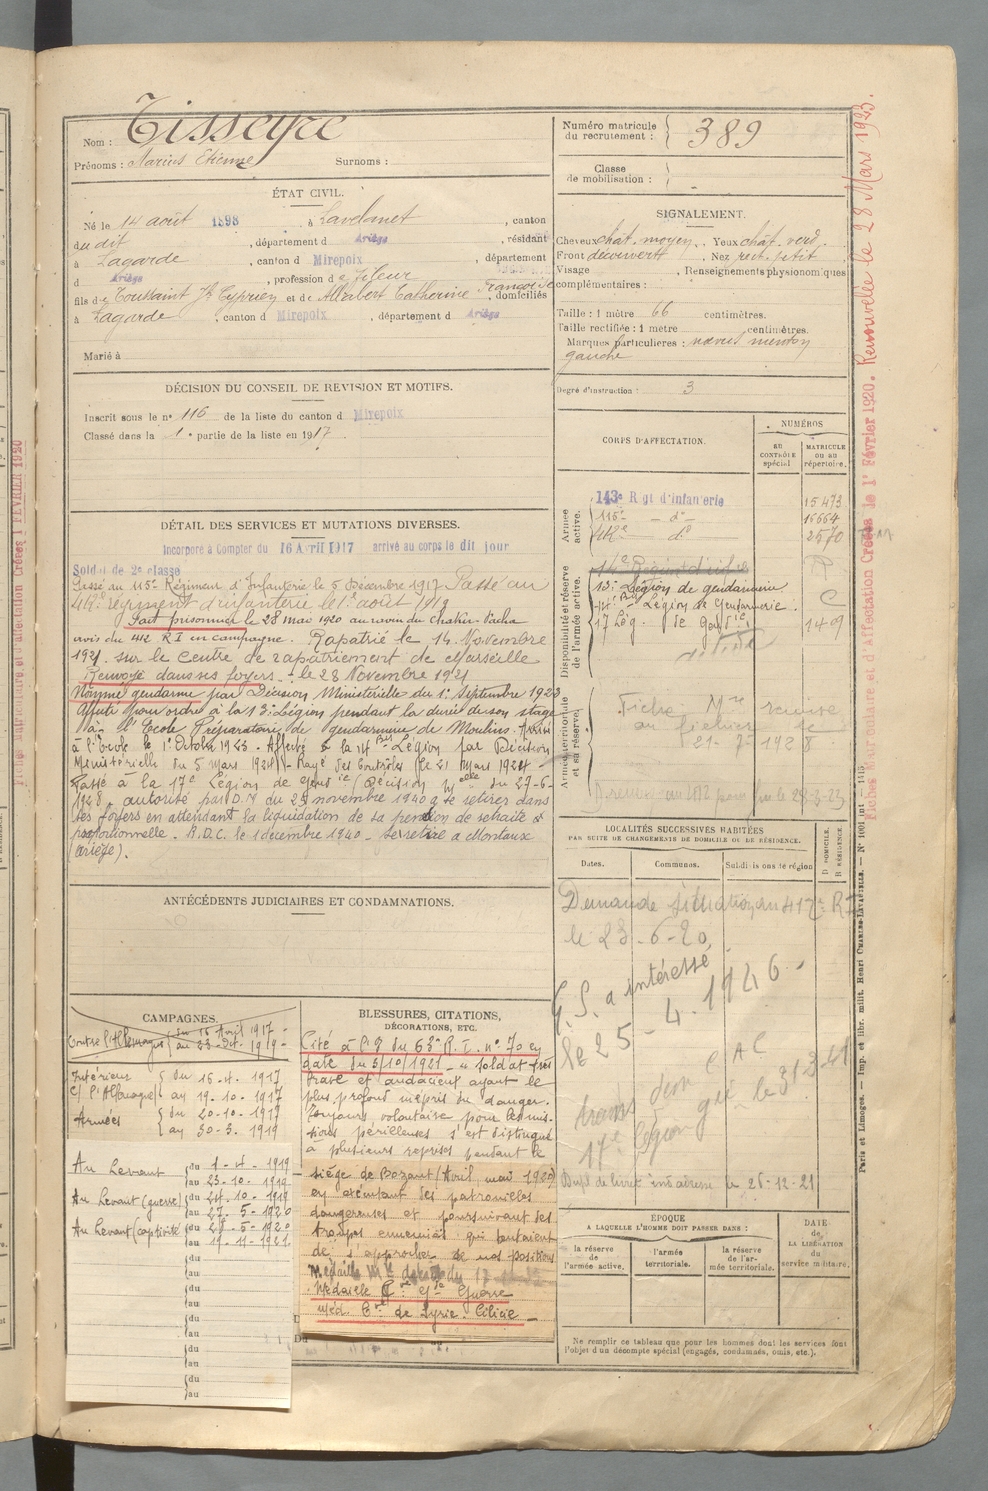 Nom : Tisseyre
Prénoms : Marius Etienne Surnoms :
ÉTAT CIVIL.
Né le 14 août 1898 à Lavelanet, canton
du dit, département d Ariège, résidant
à Lagarde, canton d Mirepoix, département
d Ariège, profession de fileur
fils de Toussaint Jh Cyprien et de Allabert Catherine Françoise, domiciliés
à Lagarde, canton d Mirepoix, département d Ariège
Marié à
DÉCISION DU CONSEIL DE REVISION ET MOTIFS.
Inscrit sous le n° 116 de la liste du canton d Mirepoix
Classé dans la 1e partie de la liste en 1917.
DÉTAIL DES SERVICES ET MUTATIONS DIVERSES.
Incorporé à Compter du 16 Avril 1917 arrivé au corps le dit jour
Soldat de 2e classe
Passé au 115e Régiment d'Infanterie le 5 Décembre 1917 Passé au
412e régiment d'infanterie le 1er août 1919
Fait prisonnier le 28 mai 1920 au ravin du Chakir-Pacha
avis du 412 R I en campagne. Rapatrié le 14 Novembre
1921 sur le Centre de rapatriement de Marseille
Renvoyé dans ses foyers le 28 Novembre 1921
Nommé gendarme par Décision Ministérielle du 1er Septembre 1923
Affecté pour ordre à la 13e Légion pendant la durée de son stage
à l'Ecole Préparatoire de gendarmerie de Moulins. Arrivé
à l'Ecole le 1er Octobre 1923. Affecté à la 14e Bis Légion par Décision
Ministérielle du 5 mars 1924 - Rayé des Contrôles le 21 mars 1924
Passé à la 17e Légion de Gendie (Décision Melle du 27-6-
1928, autorisé par D.M du 25 novembre 1940 à se retirer dans
ses foyers en attendant la liquidation de sa pension de retraite
proportionnelle. R.D.C. le 1 décembre 1940 - Se retire à Montaux
(Ariège).
ANTÉCÉDENTS JUDICIAIRES ET CONDAMNATIONS.
CAMPAGNES.
Contre l'Allemagne du 16 Avril 1917 -
au 23-Oct. 1919 -
Intérieur du 16.4.1917
C/ l'Allemagne au 19.10.1917
Armées du 20-10-1917
au 30-3.1919
Au Levant du 1-4-1919
au 23-10-1919
Au Levant (guerre) du 24-10-1919
au 27-5-1920
Au Levant (captivité) du 28-5-1920
au 19-11-1921
du
au
du
au
du
au
du
au
du
au
BLESSURES, CITATIONS,
DÉCORATIONS, ETC.
Cité à l'O du 63e R.I. n° 70 en
date du 5/10/1921 - « Soldat très
brave et audacieux ayant le
plus profond mépris du danger.
Toujours volontaire pour les mis-
sions périlleuses s'est distingué
à plusieurs reprises pendant le
siège de Bozanti (Avril, mai 1920)
en exécutant des patrouilles
dangereuses et poursuivant des
troupes ennemies qui tentaient
de s'approcher de nos positions
Médaille
Médaille Cve Gde Guerre
Méd. Cve de Syrie. Cilicie
Du au
Numéro matricule du recrutement : 389
Classe de mobilisation :
SIGNALEMENT.
Cheveux chât. moyen. Yeux chât. verd.
Front découvert, Nez rect. petit
Visage, Renseignements physionomiques
complémentaires :
Taille : 1 mètre 66 centimètres.
Taille rectifiée : 1 mètre centimètres.
Marques particulières : naevus menton
gauche
Degré d'instruction : 3
CORPS D'AFFECTATION.
NUMÉROS
au CONTRÔLE spécial
MATRICULE ou au répertoire.
Armée active.
143e Rgt d'Infanterie 15473
115e - d° - 16664
412e d° 2570
Disponibilité et réserve de l'armée active.
13e Légion de gendarmerie
14e Bis Légion de Gendarmerie. C
17 Lég. de Gendie 1409
Armée territoriale et sa réserve.
Fiche Mle
au fichier le
21-7-1928
LOCALITÉS SUCCESSIVES HABITÉES
PAR SUITE DE CHANGEMENTS DE DOMICILE OU DE RÉSIDENCE.
Dates. Communes. Subdivisions de région D DOMICILE. R RÉSIDENCE.
Demande situation au 412e RI
le 23-6-20.
G.S. a intéressé
le 25-4.1946
17e Légion le 31-3-41
le 26-12-21
ÉPOQUE
A LAQUELLE L'HOMME DOIT PASSER DANS :
la réserve de l'armée active.
l'armée territoriale.
la réserve de l'armée territoriale.
DATE de LA LIBÉRATION du service militaire.
Ne remplir ce tableau que pour les hommes dont les services font
l'objet d'un décompte spécial (engagés, condamnés, omis, etc.).
Fiches Matriculaire et d'Affectation Créées le 1er Février 1920. Renouvelée le 28 Mars 1923.
Paris et Limoges. — Imp. et libr. milit. Henri CHARLES-LAVAUZELLE. — N° 1001 int
Fiches Matriculaire et d'Affectation Créées 1 FEVRIER 1920